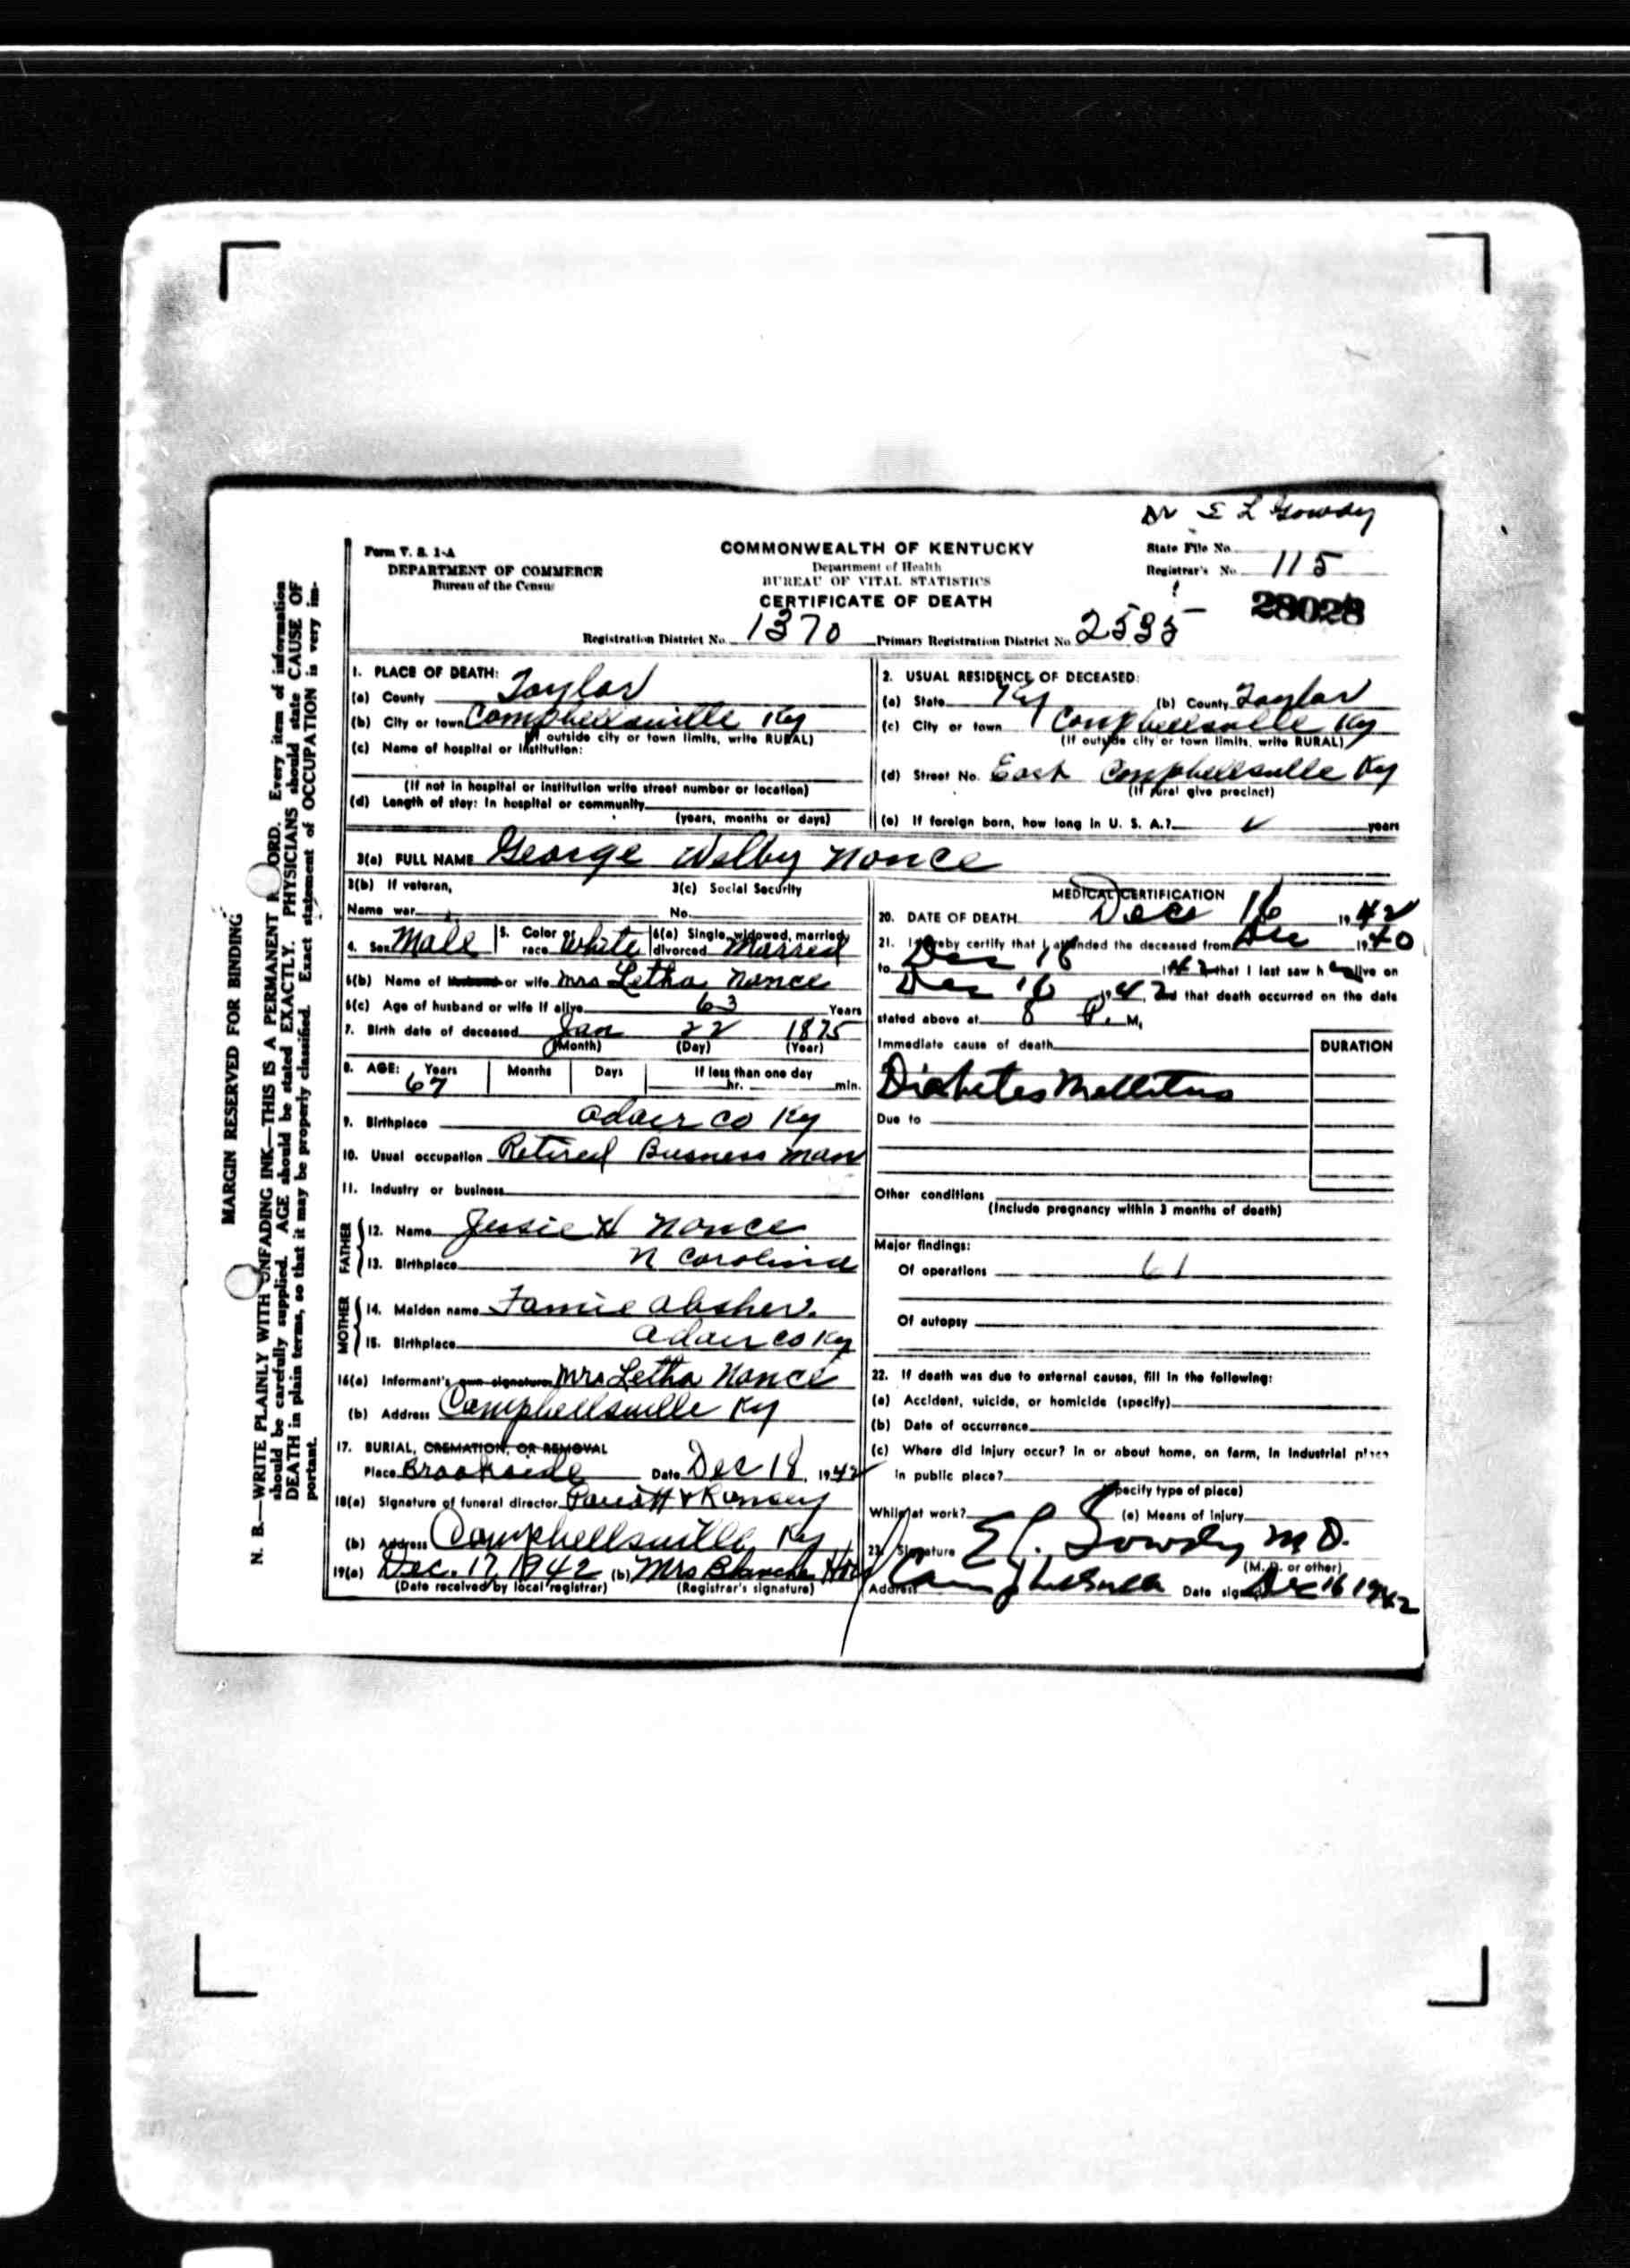 Dr E L Gowdy
Form V. S. 1-A
DEPARTMENT OF COMMERCE
Bureau of the Census
COMMONWEALTH OF KENTUCKY
Department of Health
BUREAU OF VITAL STATISTICS
CERTIFICATE OF DEATH
State File No.
Registrar's No. 115
28028
Registration District No. 1370 Primary Registration District No. 2535
1. PLACE OF DEATH:
(a) County Taylor
(b) City or town Campbellsville Ky
(If outside city or town limits, write RURAL)
(c) Name of hospital or institution:
(If not in hospital or institution write street number or location)
(d) Length of stay: In hospital or community
(years, months or days)
2. USUAL RESIDENCE OF DECEASED:
(a) State Ky (b) County Taylor
(c) City or town Campbellsville Ky
(If outside city or town limits, write RURAL)
(d) Street No. East Campbellsville Ky
(If rural give precinct)
(e) If foreign born, how long in U. S. A.? years
3(a) FULL NAME George Welby Nance
3(b) If veteran, 3(c) Social Security
Name war No.
4. Sex Male 5. Color or race White 6(a) Single, widowed, married, divorced Married
6(b) Name of husband or wife Mrs Letha Nance
6(c) Age of husband or wife if alive 63 Years
7. Birth date of deceased Jan 22 1875
(Month) (Day) (Year)
8. AGE: Years Months Days If less than one day
67 hr. min.
9. Birthplace Adair co Ky
10. Usual occupation Retired Business man
11. Industry or business
FATHER
12. Name Jessie H Nance
13. Birthplace N Carolina
MOTHER
14. Maiden name Famie Absher.
15. Birthplace Adair co Ky
16(a) Informant's own signature Mrs Letha Nance
(b) Address Campbellsville Ky
17. BURIAL, CREMATION, OR REMOVAL
Place Brookside Date Dec 18, 1942
18(a) Signature of funeral director Parrott & Ramsey
(b) Address Campbellsville Ky
19(a) Dec. 17, 1942 (b) Mrs Blanche
(Date received by local registrar) (Registrar's signature)
MEDICAL CERTIFICATION
20. DATE OF DEATH Dec 16 1942
21. I hereby certify that I attended the deceased from Dec 1940
to Dec 16 1942 that I last saw h alive on
Dec 16 1942, and that death occurred on the date
stated above at 8 P. M.
Immediate cause of death DURATION
Diabetes Mellitus
Due to
Other conditions
(Include pregnancy within 3 months of death)
Major findings:
Of operations 61
Of autopsy
22. If death was due to external causes, fill in the following:
(a) Accident, suicide, or homicide (specify)
(b) Date of occurrence
(c) Where did injury occur? In or about home, on farm, in industrial place
in public place?
(Specify type of place)
While at work? (e) Means of injury
23. Signature E L Gowdy M D.
(M. D. or other)
Address Campbellsville Date signed Dec 16 1942
MARGIN RESERVED FOR BINDING
N. B.—WRITE PLAINLY WITH UNFADING INK—THIS IS A PERMANENT RECORD. Every item of information
should be carefully supplied. AGE should be stated EXACTLY. PHYSICIANS should state CAUSE OF
DEATH in plain terms, so that it may be properly classified. Exact statement of OCCUPATION is very im-
portant.